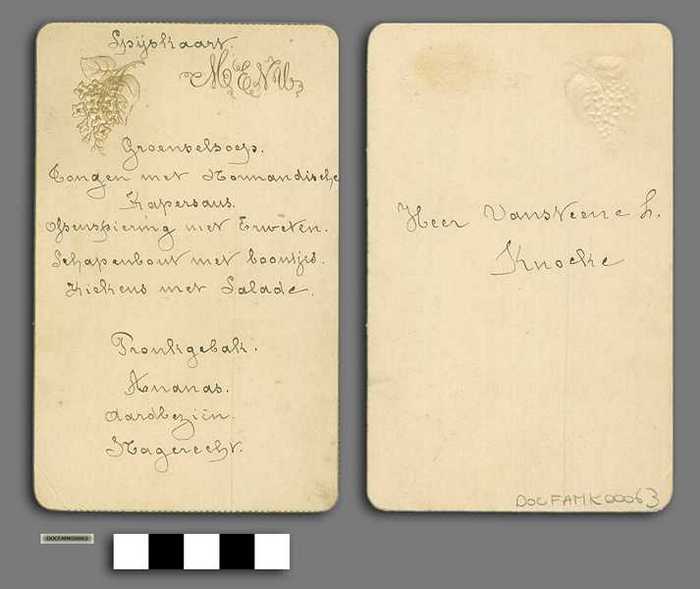 Spijskaart.
MENU
Groenselsoep.
Tongen met Normandische
Kapersaus.
Ossenspiering met Erweten.
Schapenbout met boontjes.
Kiekens met Salade.
Pronkgebak.
Ananas.
Aardbeziën.
Nagerecht.
Heer Vansteene L.
Knocke
DOCFAMK00063
DOCFAMK00063